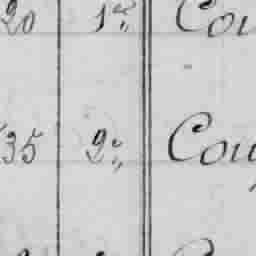 20 1º,, Cou
35 2º,, Cou